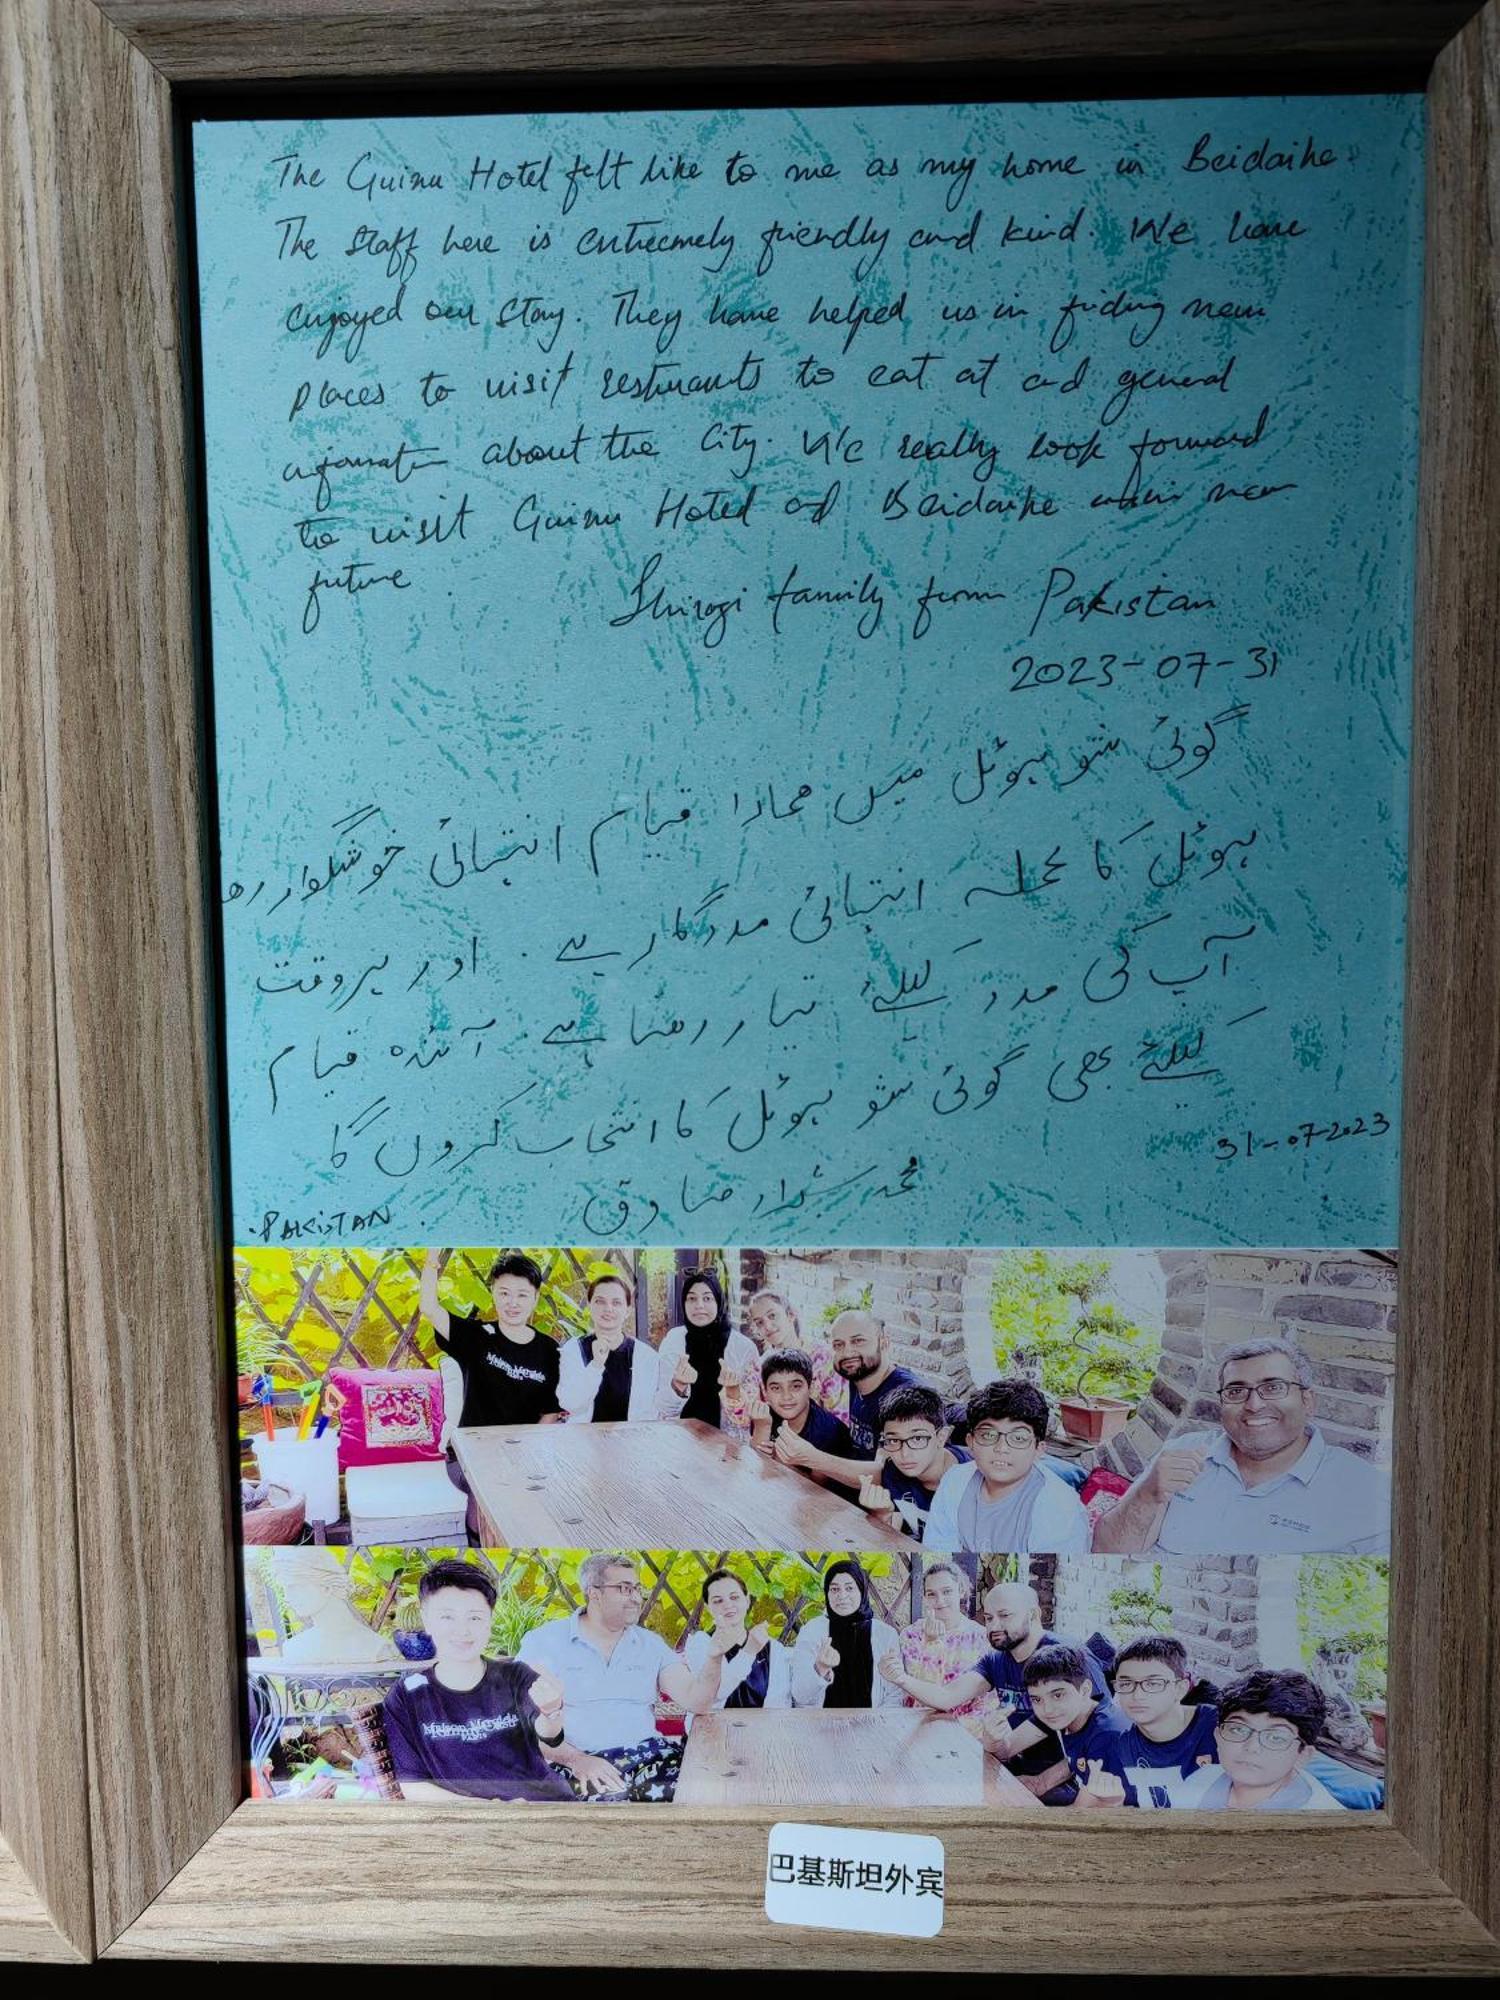 The Guinu Hotel felt like to me as my home in Beidaihe
The Staff here is extremely friendly and kind. We have
enjoyed our stay. They have helped us in finding new
places to visit resturants to eat at and general
information about the City. We really look forward
to visit Guinu Hotel and Beidaihe again near
future
family from Pakistan
2023-07-31
گوئی شو ہوٹل میں ہمارا قیام انتہائی خوشگوار رھا
ہوٹل کا عملہ انتہائی مددگار ہے. اور ہر وقت
آپ کی مدد کیلئے تیار رھتا ہے. آئندہ قیام
کیلئے بھی گوئی شو ہوٹل کا انتخاب کروں گا
31-07-2023
محمد صادق
PAKISTAN
巴基斯坦外宾